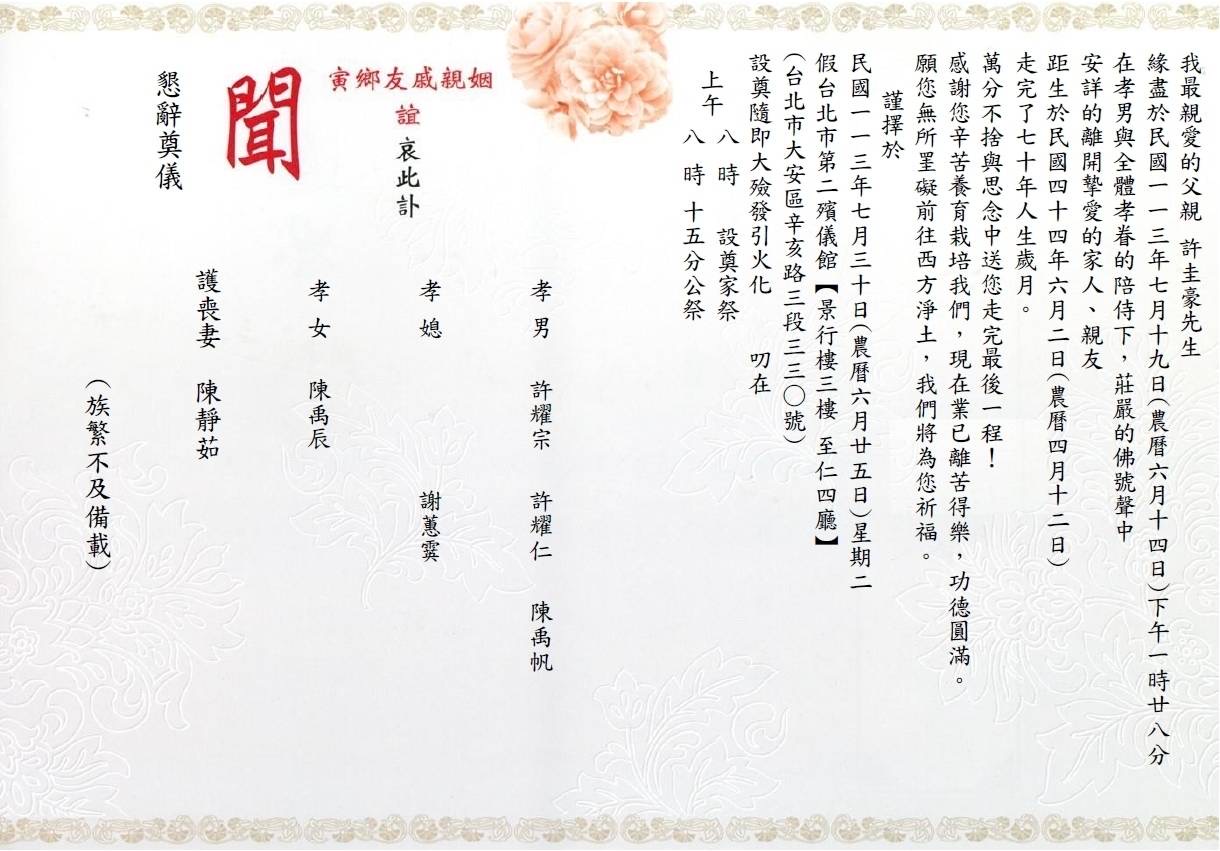 我最親愛的父親 許圭豪先生
緣盡於民國一一三年七月十九日(農曆六月十四日)下午一時廿八分
在孝男與全體孝眷的陪侍下，莊嚴的佛號聲中
安詳的離開摯愛的家人、親友
距生於民國四十四年六月二日(農曆四月十二日)
走完了七十年人生歲月。
萬分不捨與思念中送您走完最後一程！
感謝您辛苦養育栽培我們，現在業已離苦得樂，功德圓滿。
願您無所罣礙前往西方淨土，我們將為您祈福。
謹擇於
民國一一三年七月三十日(農曆六月廿五日)星期二
假台北市第二殯儀館【景行樓三樓 至仁四廳】
(台北市大安區辛亥路三段三三〇號)
設奠隨即大殮發引火化 叨在
上午 八時 設奠家祭
八時十五分公祭
姻親戚友鄉寅
誼 哀此訃
聞
懇辭奠儀
孝男 許耀宗 許耀仁 陳禹帆
孝媳 謝蕙霙
孝女 陳禹辰
護喪妻 陳靜茹
(族繁不及備載)